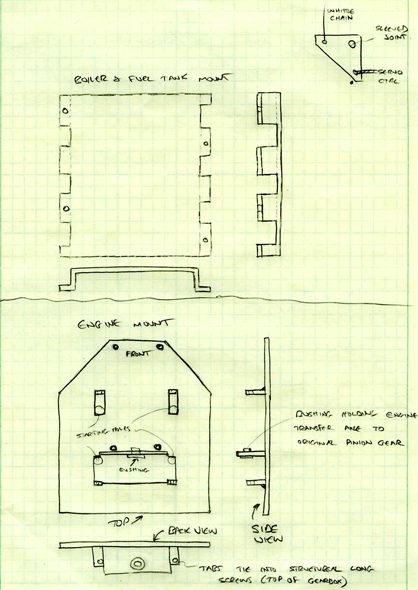 WHISTLE
CHAIN
SLEEVED
JOINT
SERVO
CTRL
BOILER & FUEL TANK MOUNT
ENGINE MOUNT
FRONT
STARTING HOLES
BUSHING
BUSHING HOLDING ENGINE
TRANSFER AXLE TO
ORIGINAL PINION GEAR
TOP
BACK VIEW
SIDE
VIEW
TABS TIE INTO STRUCTURAL LONG
SCREWS (TOP OF GEARBOX)